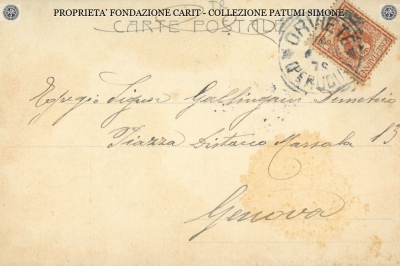 PROPRIETA' FONDAZIONE CARIT - COLLEZIONE PATUMI SIMONE
CARTE POSTALE
ORVIETO
(PERUGIA)
Egregio Signor Gallingani Demetrio
Piazza Distacco Marsala 13
Genova